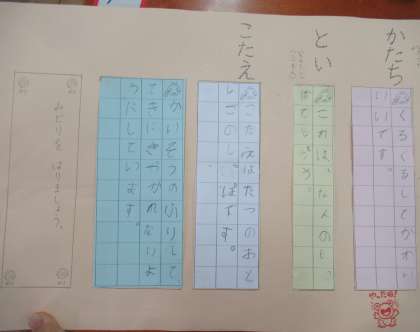 かたち
くるくるしてかわ
いいです。
とい
これは、なんのし
っぽでしょう。
こたえ
こたえはたつのおと
しごのしっぽです。
かいそうのふりをして
てきにきづかれないよ
うにしています。
みどりを はりましょう。
やったね!